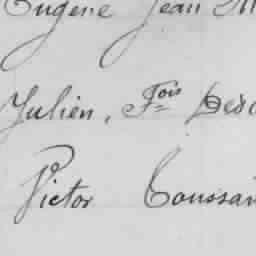 Eugene Jean M
Julien, Fois Des
Victor Toussain